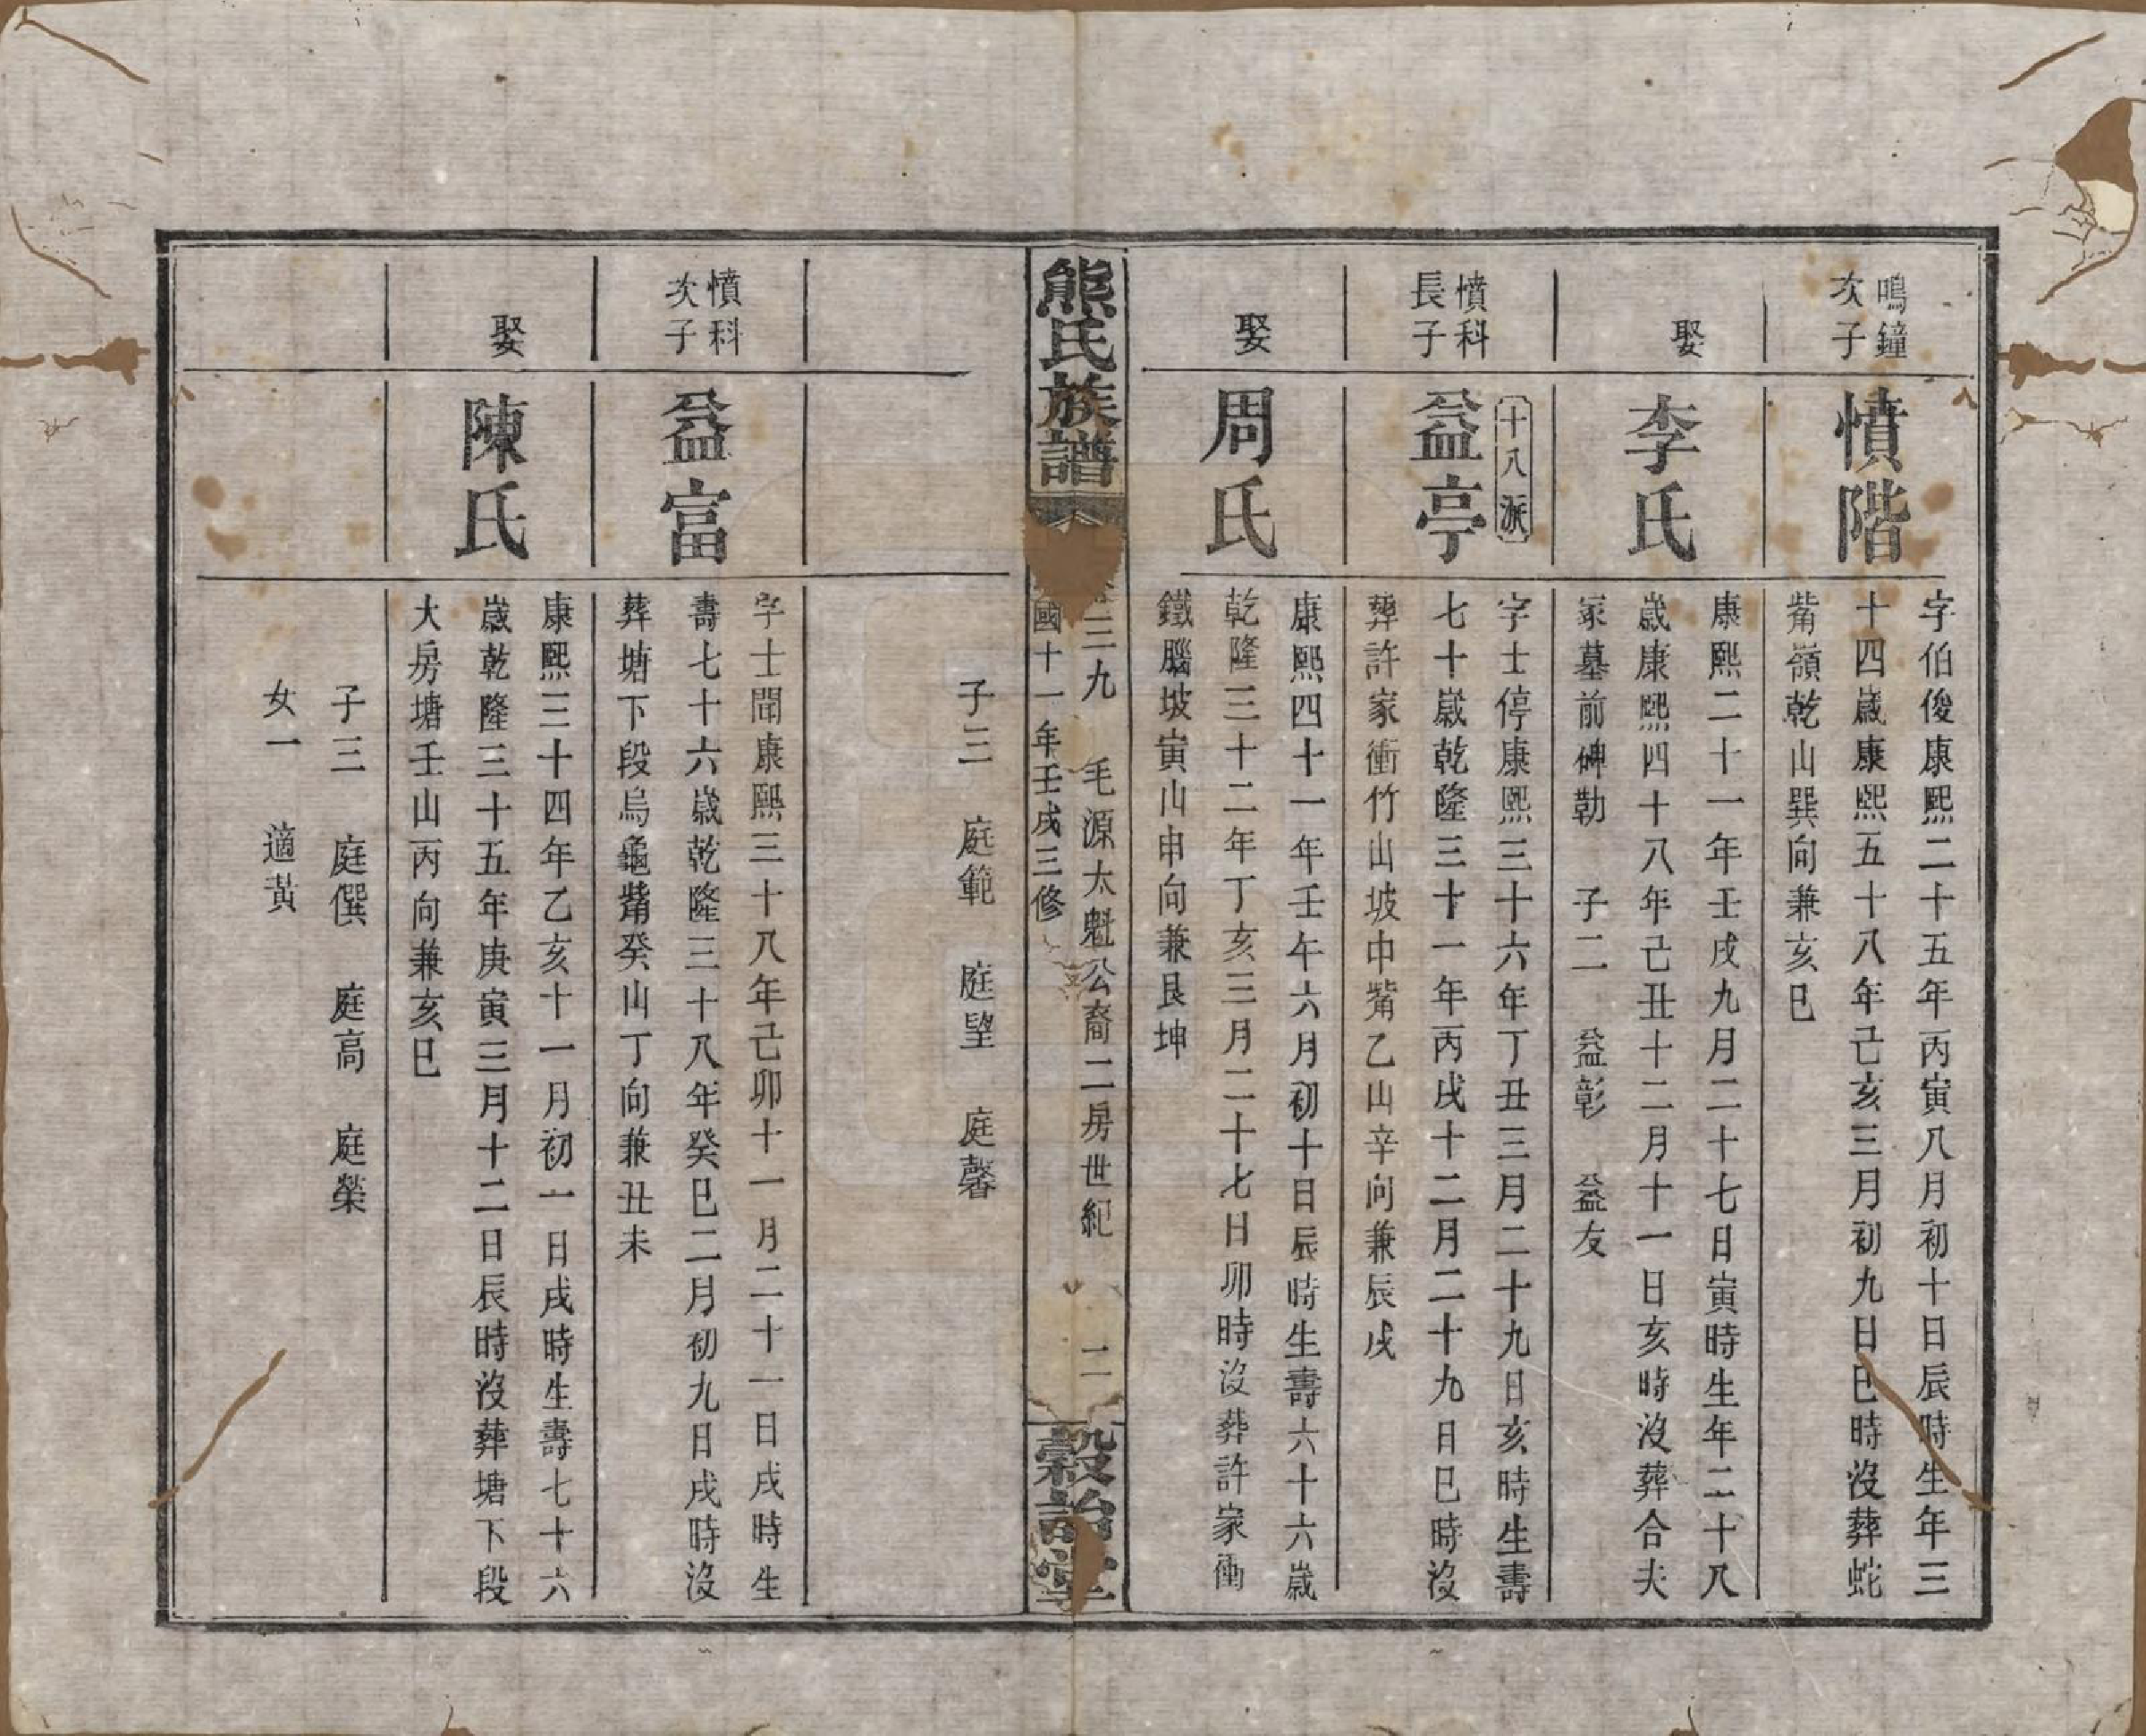 鳴鐘
次子
憤階
字伯俊康熙二十五年丙寅八月初十日辰時生年三
十四歲康熙五十八年己亥三月初九日巳時沒葬蛇
觜嶺乾山巽向兼亥巳
娶
李氏
康熙二十一年壬戌九月二十七日寅時生年二十八
歲康熙四十八年己丑十二月十一日亥時沒葬合夫
冢墓前碑勒　子二　益彰　益友
憤科
長子
十八派
益亭
字士停康熙三十六年丁丑三月二十九日亥時生壽
七十歲乾隆三十一年丙戌十二月二十九日巳時沒
葬許家衝竹山坡中觜乙山辛向兼辰戌
娶
周氏
康熙四十一年壬午六月初十日辰時生壽六十六歲
乾隆三十二年丁亥三月二十七日卯時沒葬許家衝
鐵腦坡寅山申向兼艮坤
熊氏族譜
三九　毛源太魁公裔二房世紀　二
國十一年壬戌三修
穀詒堂
子三　庭範　庭望　庭馨
憤科
次子
益富
字士聞康熙三十八年己卯十一月二十一日戌時生
壽七十六歲乾隆三十八年癸巳二月初九日戌時沒
葬塘下段烏龜觜癸山丁向兼丑未
娶
陳氏
康熙三十四年乙亥十一月初一日戌時生壽七十六
歲乾隆三十五年庚寅三月十二日辰時沒葬塘下段
大房塘壬山丙向兼亥巳
子三　庭僎　庭高　庭榮
女一　適黃